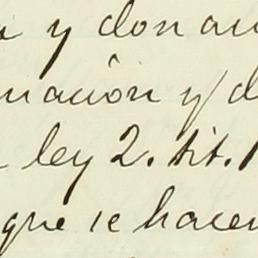 y don
nación y d
ley 2. tit. 1
que se hacen